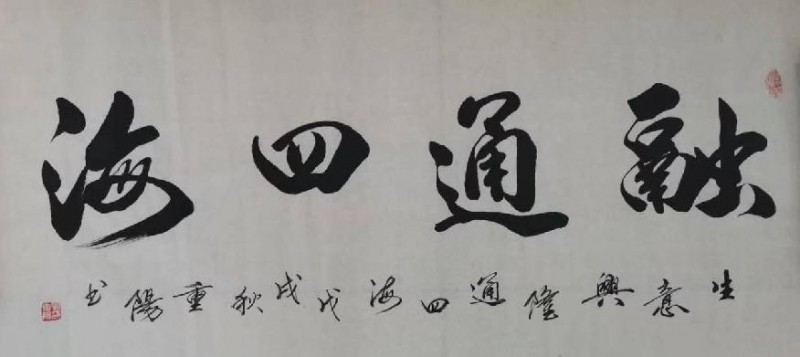 融通四海
生意興隆通四海戊戌秋重陽書